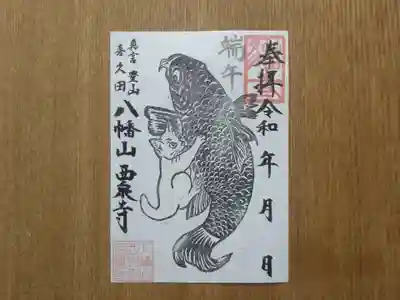 奉拝
令和 年 月 日
端午
真言 豊山
喜久田
八幡山 西泉寺